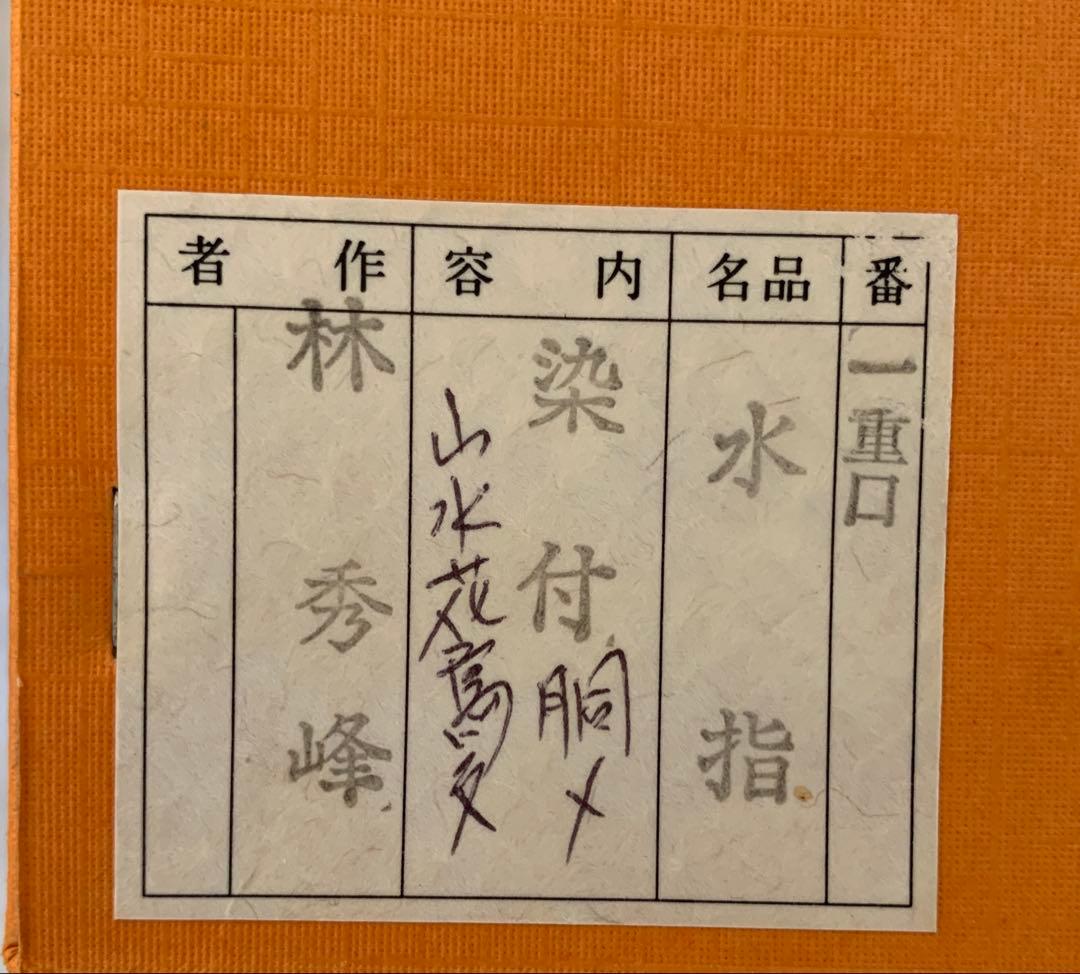 番
一重口
品名
水指
内容
染付胴〆
山水花鳥文
作者
林秀峰